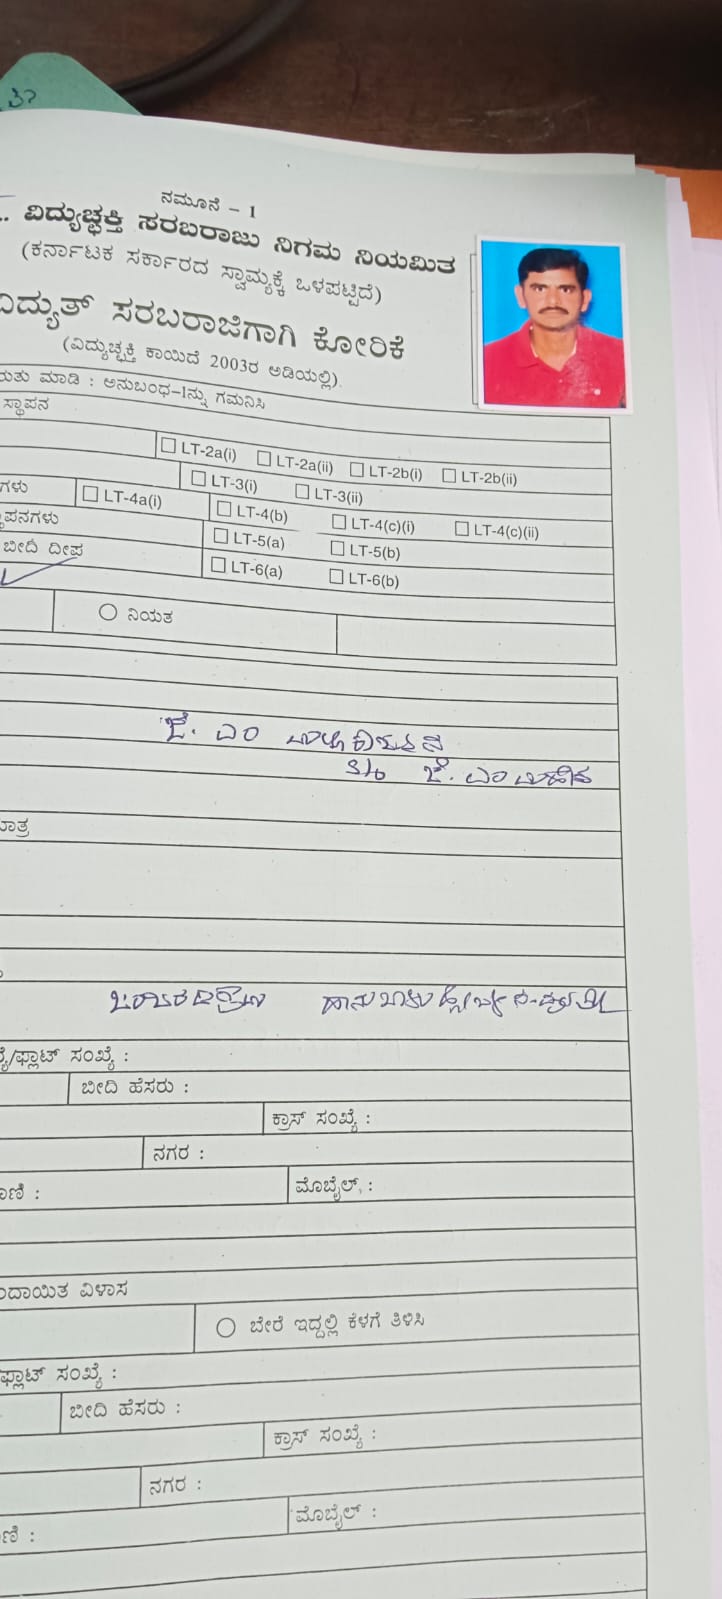 ನಮೂನೆ – 1
ವಿದ್ಯುಚ್ಛಕ್ತಿ ಸರಬರಾಜು ನಿಗಮ ನಿಯಮಿತ
(ಕರ್ನಾಟಕ ಸರ್ಕಾರದ ಸ್ವಾಮ್ಯಕ್ಕೆ ಒಳಪಟ್ಟಿದೆ)
ವಿದ್ಯುತ್ ಸರಬರಾಜಿಗಾಗಿ ಕೋರಿಕೆ
(ವಿದ್ಯುಚ್ಛಕ್ತಿ ಕಾಯಿದೆ 2003ರ ಅಡಿಯಲ್ಲಿ)
ಮಾಡಿ : ಅನುಬಂಧ–1ನ್ನು ಗಮನಿಸಿ
ಸ್ಥಾಪನ
LT-2a(i) LT-2a(ii) LT-2b(i) LT-2b(ii)
LT-3(i) LT-3(ii)
ಗಳು LT-4a(i) LT-4(b) LT-4(c)(i) LT-4(c)(ii)
ಪನಗಳು LT-5(a) LT-5(b)
ಬೀದಿ ದೀಪ LT-6(a) LT-6(b)
ನಿಯತ
ಜೆ. ಎಂ
S/o ಜೆ. ಎಂ
ಮಾತ್ರ
/ಫ್ಲಾಟ್ ಸಂಖ್ಯೆ :
ಬೀದಿ ಹೆಸರು :
ಕ್ರಾಸ್ ಸಂಖ್ಯೆ :
ನಗರ :
ಣಿ : ಮೊಬೈಲ್ :
ದಾಯಿತ ವಿಳಾಸ
ಬೇರೆ ಇದ್ದಲ್ಲಿ ಕೆಳಗೆ ತಿಳಿಸಿ
ಫ್ಲಾಟ್ ಸಂಖ್ಯೆ :
ಬೀದಿ ಹೆಸರು :
ಕ್ರಾಸ್ ಸಂಖ್ಯೆ :
ನಗರ :
ಣಿ : ಮೊಬೈಲ್ :